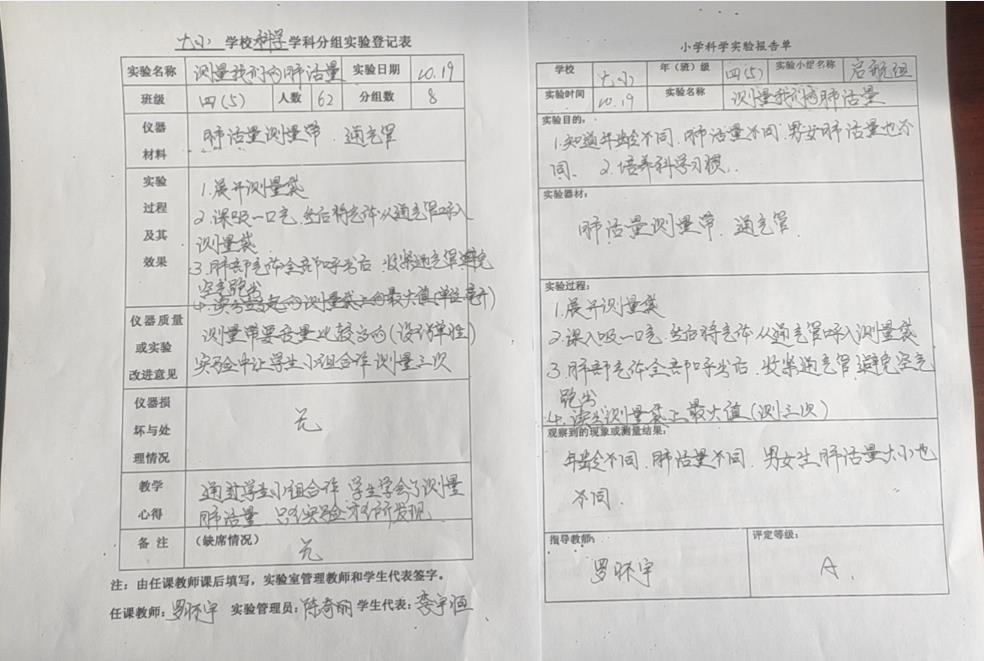 大小 学校科学学科分组实验登记表
实验名称 测量我们的肺活量 实验日期 10.19
班级 四(5) 人数 62 分组数 8
仪器材料 肺活量测量带 通气管
实验过程及其效果
1.展开测量袋
2.深吸一口气,然后将气体从通气管呼入
测量袋
3.肺部气体全部呼出后 收紧通气管避免
空气跑出
4.测量袋上的最大值(单位毫升)
仪器质量或实验改进意见
测量带要质量比较好的
实验中让学生小组合作 测量三次
仪器损坏与处理情况 无
教学心得
通过学生小组合作 学生学会了测量
肺活量 只有实验才有所发现
备 注 (缺席情况) 无
注:由任课教师课后填写,实验室管理教师和学生代表签字。
任课教师:罗怀宇 实验管理员:陈奇丽 学生代表:李宇恒
小学科学实验报告单
学校 大小 年(班)级 四(5) 实验小组名称 启航组
实验时间 10.19 实验名称 测量我们的肺活量
实验目的:
1.知道年龄不同,肺活量不同,男女肺活量也不
同、 2.培养科学习惯.
实验器材:
肺活量测量带、通气管
实验过程:
1.展开测量袋
2.深入吸一口气,然后将气体从通气管呼入测量袋
3.肺部气体全部呼出后、收紧通气管避免空气
跑出
4.读出测量袋上最大值(测三次)
观察到的现象或测量结果:
年龄不同,肺活量不同,男女生肺活量大小也
不同.
指导教师: 评定等级:
罗怀宇 A.